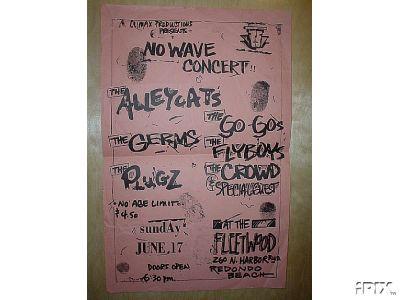 A CLIMAX PRODUCTIONS
PRESENTS
NO WAVE
CONCERT!
THE ALLEYCATS
THE GO-GOs
THE GERMS
THE FLYBOYS
THE PLUGZ
THE CROWD
SPECIAL GUEST
NO AGE LIMIT
$4.50
SUNdAY
JUNE, 17
DOORS OPEN
6:30 pm
AT THE
FLEETWOOD
260 N. HARBOR
REDONDO
BEACH
iPIX